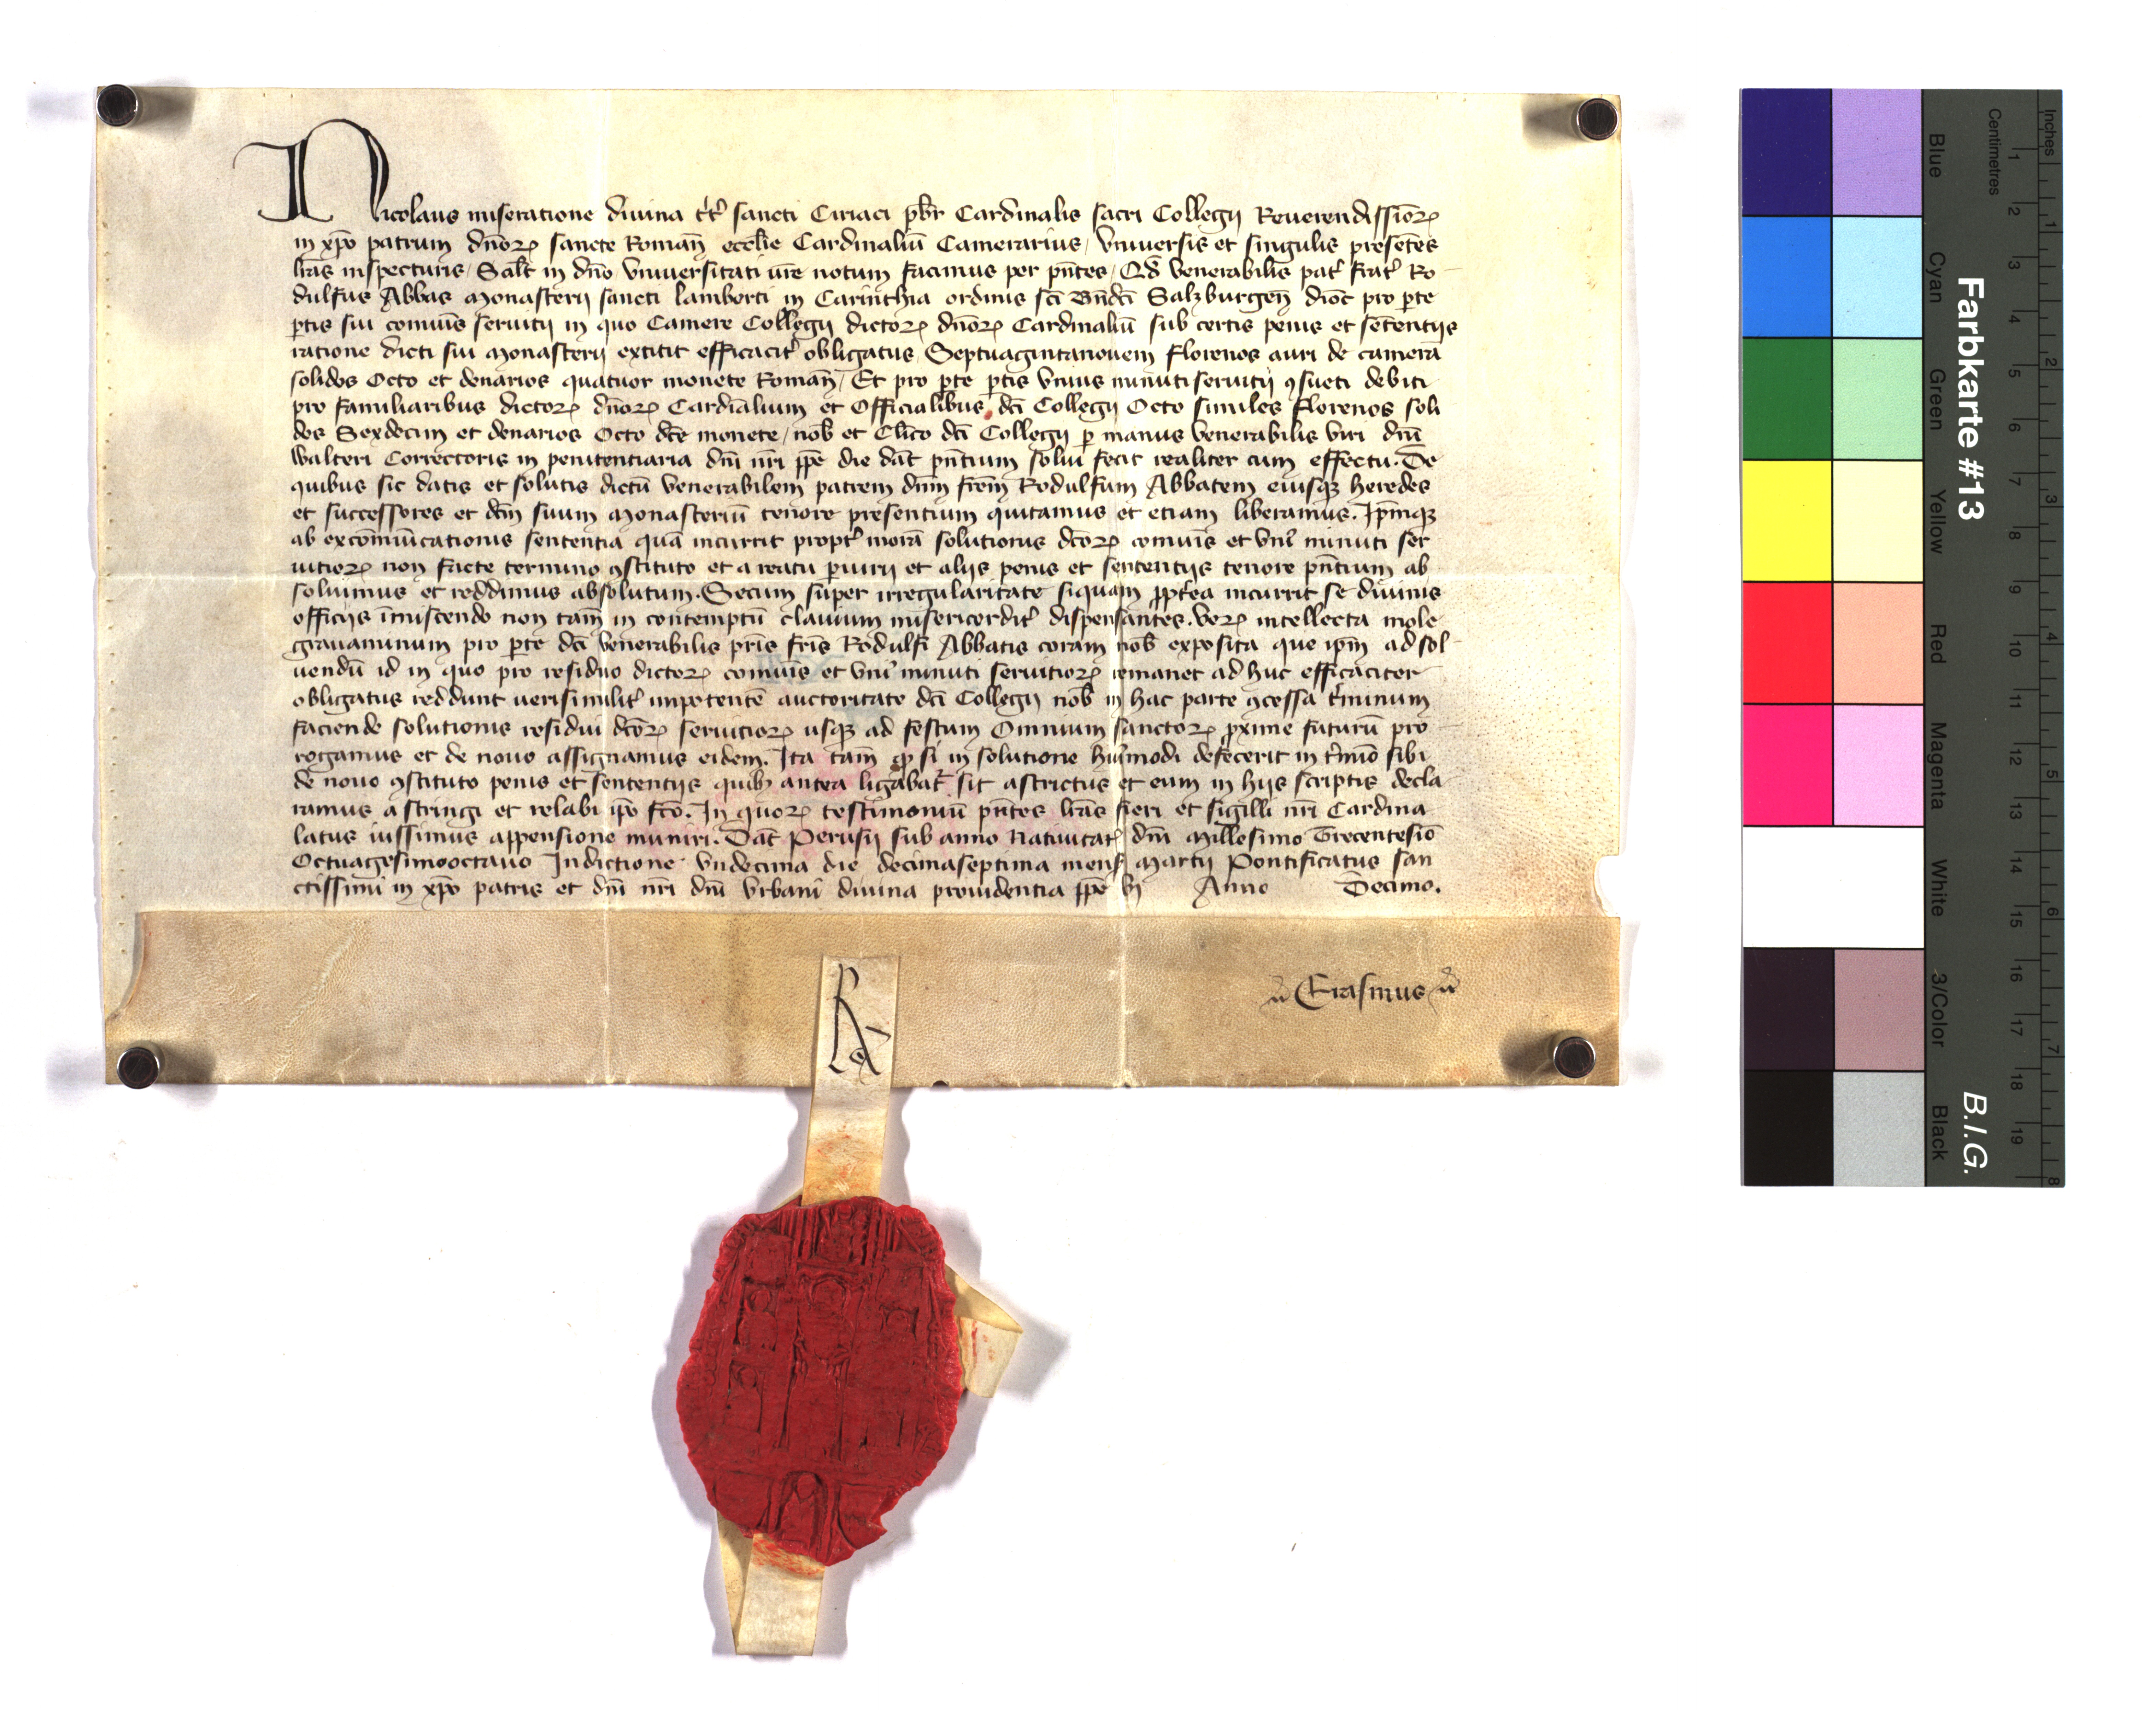 Nicolaus miseratione divina tt̃ sancti Ciriaci pbr̃ Cardinalis sacri Collegij Reuerendissiõꝝ
in xp̃o patrum dñoꝝ sancte Romañ ecclie Cardinaliũ Camerarius / Vniuersis et singulis presẽtes
lr̃as inspecturis / Salt̃ in dño Vniuersitati ur̃e notum facimus per pñtes / Qđ venerabilis pat̃ frat̃ Ro-
dulfus Abbas Monasterij sancti lamberti in Carinthia ordinis sc̃i Bñdc̃i Salzburgeñ dioc̃ pro ꝑte
ꝑtis sui com̃uis seruitij in quo Camere Collegij dictoꝝ dñoꝝ Cardinaliũ sub certis penis et sẽtentijs
ratione dicti sui Monasterij extitit efficacit̃ obligatus / Septuagintanouem florenos auri de camera
solidos Octo et denarios quatuor monete Romañ / Et pro ꝑte ꝑtis vnius minuti seruitij ꝯsueti debiti
pro familiaribus dictoꝝ dñoꝝ Cardiãlium et Officialibus dc̃i Collegij Octo similes florenos soli
dos Sexdecim et denarios Octo dc̃e monete / nob̃ et Clico dc̃i Collegij ꝑ manus venerabilis viri dñi
Walteri Correctoris in penitentiaria dñi nr̃i pp̃e die dat̃ pñtium solui fecit realiter cum effectu. De
quibus sic datis et solutis dictũ venerabilem patrem dñm frẽm Rodulfum Abbatem eiusqꝫ heredes
et successores et dc̃m suum Monasteriũ tenore presentium quitamus et etiam liberamus. Ip̃mqꝫ
ab excom̃unicationis sententia quã incurrit propt̃ morã solutionis dc̃oꝝ com̃uis et vni9 minuti ser
uitioꝝ non facte termino ꝯstituto et a reatu ꝑiurij et alijs penis et sententijs tenore pñtium ab
soluimus et reddimus absolutum. Secum super irregularitate siquam ppt̃ea incurrit se diuinis
officijs ĩmiscendo non tam̃ in contemptũ clauium misericordit̃ dispensantes. Veꝝ intellecta mole
grauaminum pro ꝑte dc̃i venerabilis pr̃is fr̃is Rodulfi Abbatis coram nob̃ exposita que ip̃m ad sol-
uendũ id in quo pro residuo dictoꝝ com̃uis et vni9 minuti seruitioꝝ remanet ad huc efficaciter
obligatus reddunt uerisimilit̃ impotentẽ auctoritate dc̃i Collegij nob̃ in hac parte ꝯcessa t̃minum
faciende solutionis residui dc̃oꝝ seruitioꝝ usqꝫ ad festum Omnium sanctoꝝ pxime futurũ pro
rogamus et de nouo assignamus eidem. Ita tam̃ ꝙ si in solutione hui9modi defecerit in t̃mĩo sibi
de nouo ꝯstituto penis et sententijs quibꝫ antea ligabat̃ sit astrictus et eum in hijs scriptis decla
ramus astringi et relabi ip̃o fc̃o. In quoꝝ testimoniũ pñtes lr̃as fieri et sigilli nr̃i Cardina
latus iussimus appensione muniri. Dat̃ Perusij sub anno Natiuitat̃ dñi Millesimo Trecentesiõ
Octuagesimooctauo Indictione vndecima die decimaseptima mens̃ Martij Pontificatus san
ctissimi in xp̃o patris et dñi nr̃i dñi Vrbani diuina prouidentia pp̃e vj Anno Decimo.
Erasmus
Inches
Centimetres
Farbkarte #13
B.I.G.
Blue
Cyan
Green
Yellow
Red
Magenta
White
3/Color
Black
1 2 3 4 5 6 7 8 9 10 11 12 13 14 15 16 17 18 19
1 2 3 4 5 6 7 8